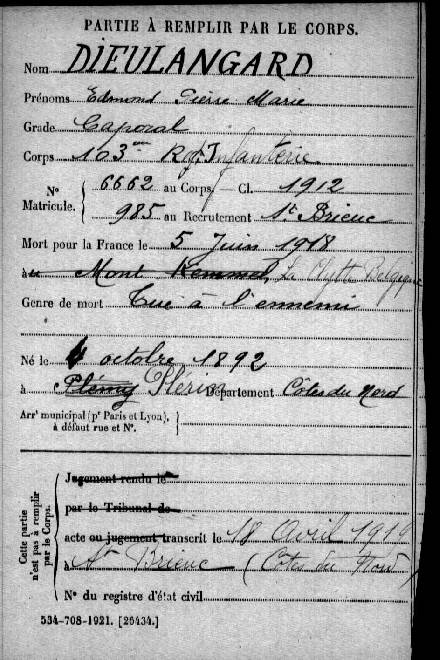 PARTIE À REMPLIR PAR LE CORPS.
Nom DIEULANGARD
Prénoms Edmond Pierre Marie
Grade Caporal
Corps 103me Rgt Infanterie
N° Matricule. 6662 au Corps. — Cl. 1912
985 au Recrutement St Brieuc
Mort pour la France le 5 Juin 1918
à Mont Kemmel, La Clytte Belgique
Genre de mort Tué à l'ennemi
Né le 4 octobre 1892
à Plémy Plérin Département Côtes du Nord
Arrt municipal (pr Paris et Lyon), à défaut rue et N°.
Cette partie n'est pas à remplir par le Corps.
Jugement rendu le
par le Tribunal de
acte ou jugement transcrit le 18 Avril 1919
à St Brieuc (Côtes du Nord)
N° du registre d'état civil
534-708-1921. [26434.]